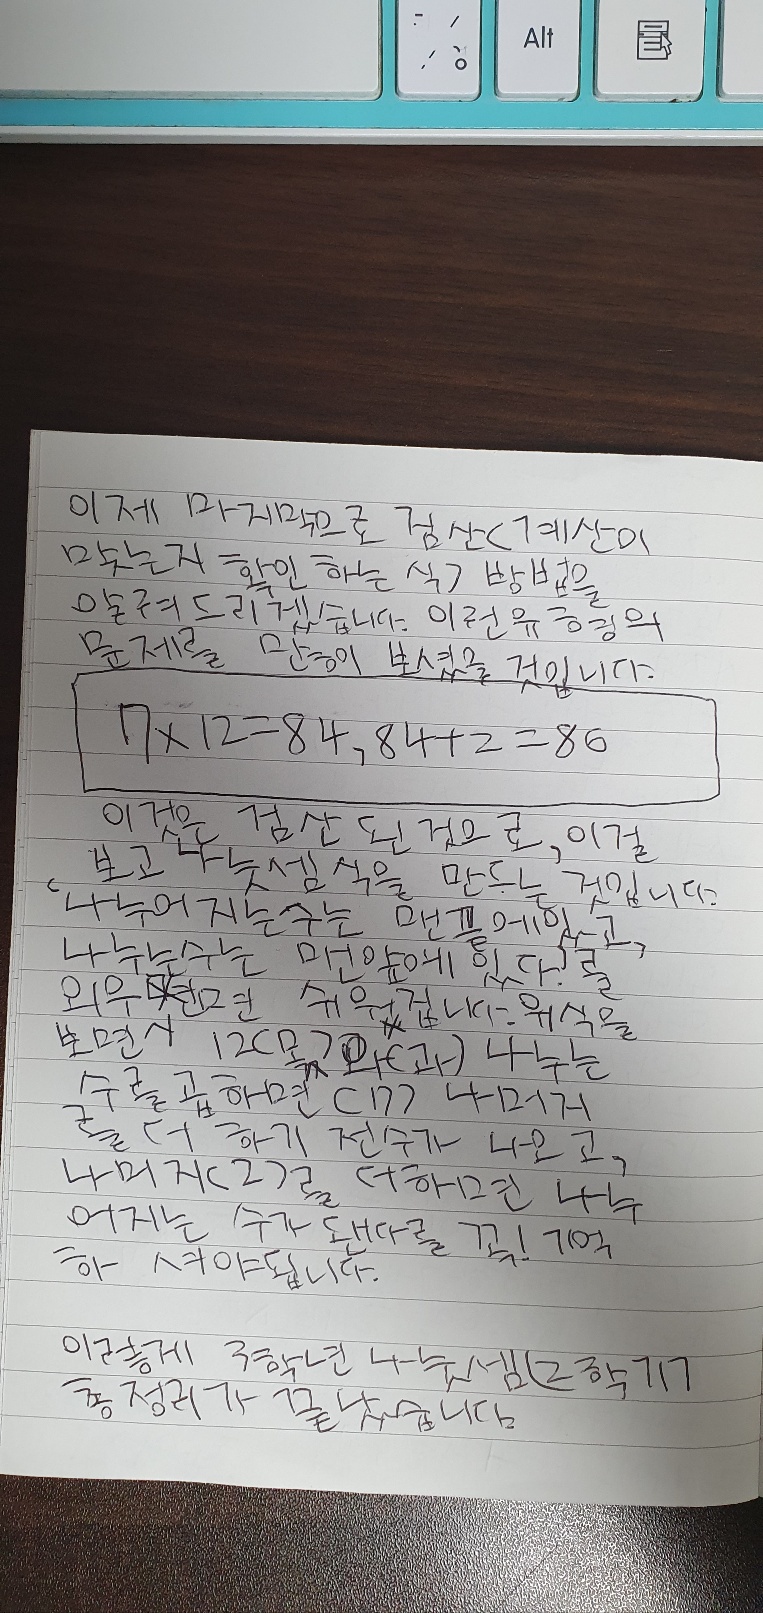 Alt
이제 마지막으로 검산(계산이
맞는지 확인 하는 식) 방법을
알려 드리겠습니다. 이런유형의
문제를 많이 보셨을 것입니다.
7×12=84, 84+2=86
이것은 검산 된 것으로, 이걸
보고 나눗셈 식을 만드는 것입니다.
'나누어지는수는 맨끝에있고,
나누는수는 맨앞에 있다!를
외우면 쉬워집니다. 위 식을
보면서 12(몫)와(과) 나누는
수를 곱하면 (7) 나머지
를 더 하기 전수가 나오고,
나머지(2)를 더하면 나누
어지는 수가 됀다를 꼭! 기억
하 셔야됩니다.
이렇게 3학년 나눗셈(2학기)
총정리가 끝났습니다